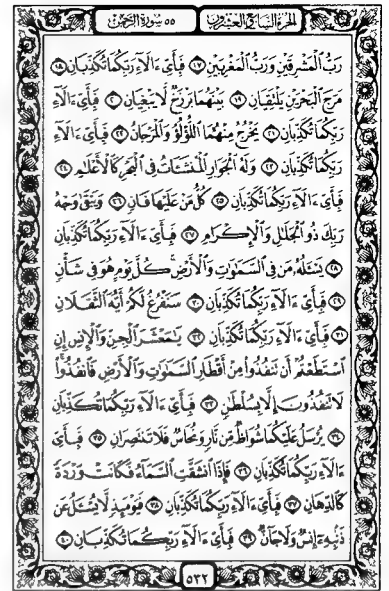 الجزء السابع والعشرون
٥٥ سورة الرحمن
رَبُّ ٱلْمَشْرِقَيْنِ وَرَبُّ ٱلْمَغْرِبَيْنِ ١٧ فَبِأَىِّ ءَالَآءِ رَبِّكُمَا تُكَذِّبَانِ ١٨
مَرَجَ ٱلْبَحْرَيْنِ يَلْتَقِيَانِ ١٩ بَيْنَهُمَا بَرْزَخٌ لَّا يَبْغِيَانِ ٢٠ فَبِأَىِّ ءَالَآءِ
رَبِّكُمَا تُكَذِّبَانِ ٢١ يَخْرُجُ مِنْهُمَا ٱللُّؤْلُؤُ وَٱلْمَرْجَانُ ٢٢ فَبِأَىِّ ءَالَآءِ
رَبِّكُمَا تُكَذِّبَانِ ٢٣ وَلَهُ ٱلْجَوَارِ ٱلْمُنشَـَٔاتُ فِى ٱلْبَحْرِ كَٱلْأَعْلَٰمِ ٢٤
فَبِأَىِّ ءَالَآءِ رَبِّكُمَا تُكَذِّبَانِ ٢٥ كُلُّ مَنْ عَلَيْهَا فَانٍ ٢٦ وَيَبْقَىٰ وَجْهُ
رَبِّكَ ذُو ٱلْجَلَٰلِ وَٱلْإِكْرَامِ ٢٧ فَبِأَىِّ ءَالَآءِ رَبِّكُمَا تُكَذِّبَانِ
٢٨ يَسْـَٔلُهُۥ مَن فِى ٱلسَّمَٰوَٰتِ وَٱلْأَرْضِ ۚ كُلَّ يَوْمٍ هُوَ فِى شَأْنٍ
٢٩ فَبِأَىِّ ءَالَآءِ رَبِّكُمَا تُكَذِّبَانِ ٣٠ سَنَفْرُغُ لَكُمْ أَيُّهَ ٱلثَّقَلَانِ
٣١ فَبِأَىِّ ءَالَآءِ رَبِّكُمَا تُكَذِّبَانِ ٣٢ يَٰمَعْشَرَ ٱلْجِنِّ وَٱلْإِنسِ إِنِ
ٱسْتَطَعْتُمْ أَن تَنفُذُوا۟ مِنْ أَقْطَارِ ٱلسَّمَٰوَٰتِ وَٱلْأَرْضِ فَٱنفُذُوا۟ ۚ
لَا تَنفُذُونَ إِلَّا بِسُلْطَٰنٍ ٣٣ فَبِأَىِّ ءَالَآءِ رَبِّكُمَا تُكَذِّبَانِ
٣٤ يُرْسَلُ عَلَيْكُمَا شُوَاظٌ مِّن نَّارٍ وَنُحَاسٌ فَلَا تَنتَصِرَانِ ٣٥ فَبِأَىِّ
ءَالَآءِ رَبِّكُمَا تُكَذِّبَانِ ٣٦ فَإِذَا ٱنشَقَّتِ ٱلسَّمَآءُ فَكَانَتْ وَرْدَةً
كَٱلدِّهَانِ ٣٧ فَبِأَىِّ ءَالَآءِ رَبِّكُمَا تُكَذِّبَانِ ٣٨ فَيَوْمَئِذٍ لَّا يُسْـَٔلُ عَن
ذَنۢبِهِۦٓ إِنسٌ وَلَا جَآنٌّ ٣٩ فَبِأَىِّ ءَالَآءِ رَبِّكُمَا تُكَذِّبَانِ ٤٠
٥٣٢